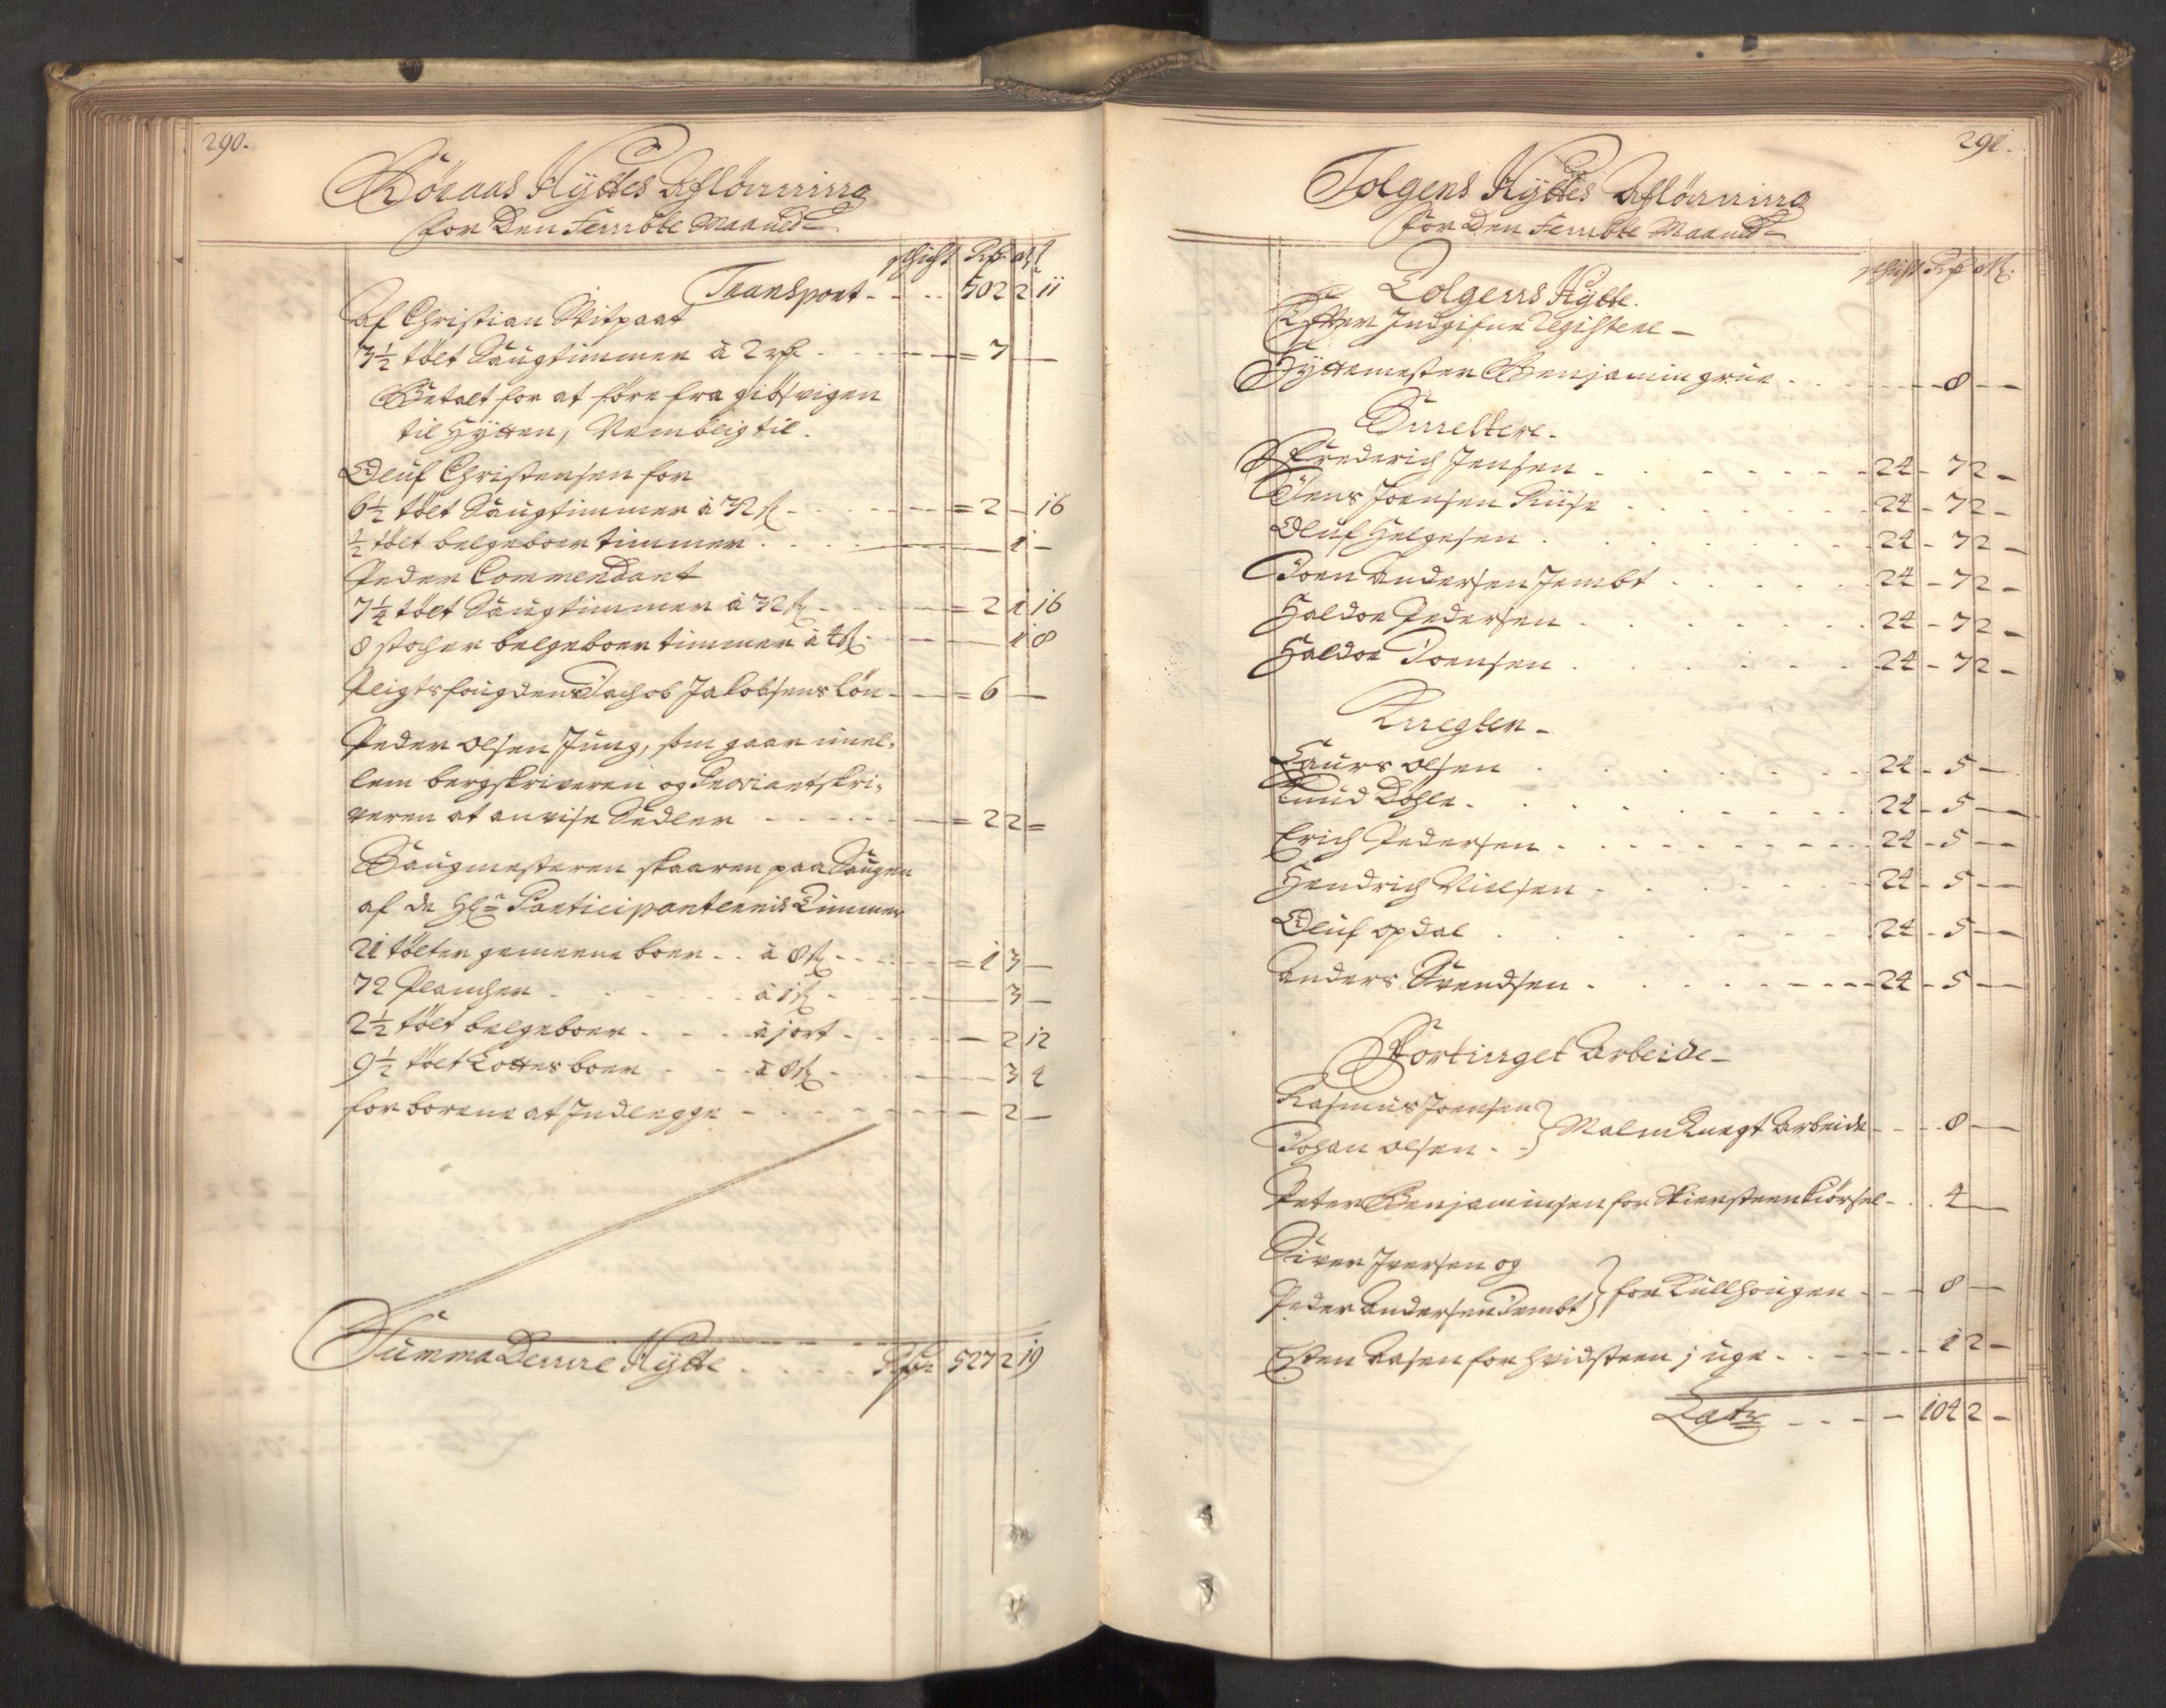 290.
Röraas Hyttes Aflönning
for Den Fembte Maaned
schicht Rd ort ß
Transport - - - 502 2 11
Af Christian Skitpaat
3½ tölt Saugtimmer à 2 rd - - - = 7 —
Betalt for at före fra giösvigen
til Hytten, Nembligtil.
Oluf Christensen for
6½ tölt Saugtimmer à 32 ß - - - = 2 - 16
½ tölt belgeboer timmer - - - 1 -
Peder Commendant
7¼ tölt Saugtimmer à 32 ß - - - = 2 1 16
8 stocher belgeboer timmer à 4 ß - - - 1 8
Pligtsfougden Jachob Jakobsens lön - - = 6 —
Peder Olsen Jung, som gaar imel-
lem bergskriveren og Proviantskri-
veren at anvise Sedler - - - = 2 2 =
Saugmesteren skaaren paa Saugen
af de Hl: Participanternis Timmer
21 tölter gemeene boer - - à 8 ß - - - = 1 3 —
72 Plancher - - - à 1 ß - - - 3 —
2½ tölt belgeboer - - - à 1 ort - - - 2 12
9½ tölt Lottes boer - - à 8 ß - - - 3 4
for borene at Indlegge - - - 2 —
Summa Denne Hytte - - - - Rdr 527 2 19
291.
Tolgens Hyttes Aflönning
for Den Femбte Maaned
schicht Rd ort ß
Tolgens Hytte.
Efter Indgifne Registere -
Hyttemester Benjamin grüe - - - 8 — —
Smeltere.
Frederich Jensen - - - 24 - 7 2 -
Jens Joensen Riise - - - 24 - 7 2 -
Oluf Helgesen - - - 24 - 7 2 -
Joen Andersen Jembt - - - 24 - 7 2 -
Haldor Pedersen - - - 24 - 7 2 -
Haldor Joensen - - - 24 - 7 2 -
Knegter -
Laurs Olsen - - - 24 - 5 —
Knud Döhle - - - 24 - 5 —
Erich Pedersen - - - 24 - 5 —
Hendrich Nielsen - - - 24 - 5 —
Oluf opdal - - - 24 - 5 —
Anders Svendsen - - - 24 - 5 —
Fortinget Arbeide -
Rasmus Joensen
Johan Olsen - - } Malm Knegt Arbeide - - - 8 —
Peter Benjaminsen for Skiersteen Kiörsel - - 4 —
Siver Iversen og
Peder Andersen Jembt } for Kullhougen - - - 8 —
Esten Aasen for hvidsteen j uge - - - 1 2 -
Latr - - - - 104 2 -